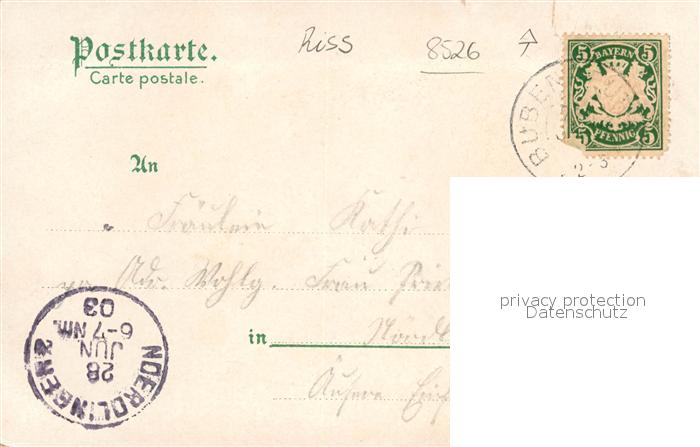 Postkarte.
Carte postale.
Riss
8526
5 BAYERN 5
5 PFENNIG 5
BUBEN
2-3
An
Fräulein Kathi
Adr. Wohlg. Frau
in Nördl
NOERDLINGEN 2
28
JUN
6-7 Nm.
03
privacy protection
Datenschutz